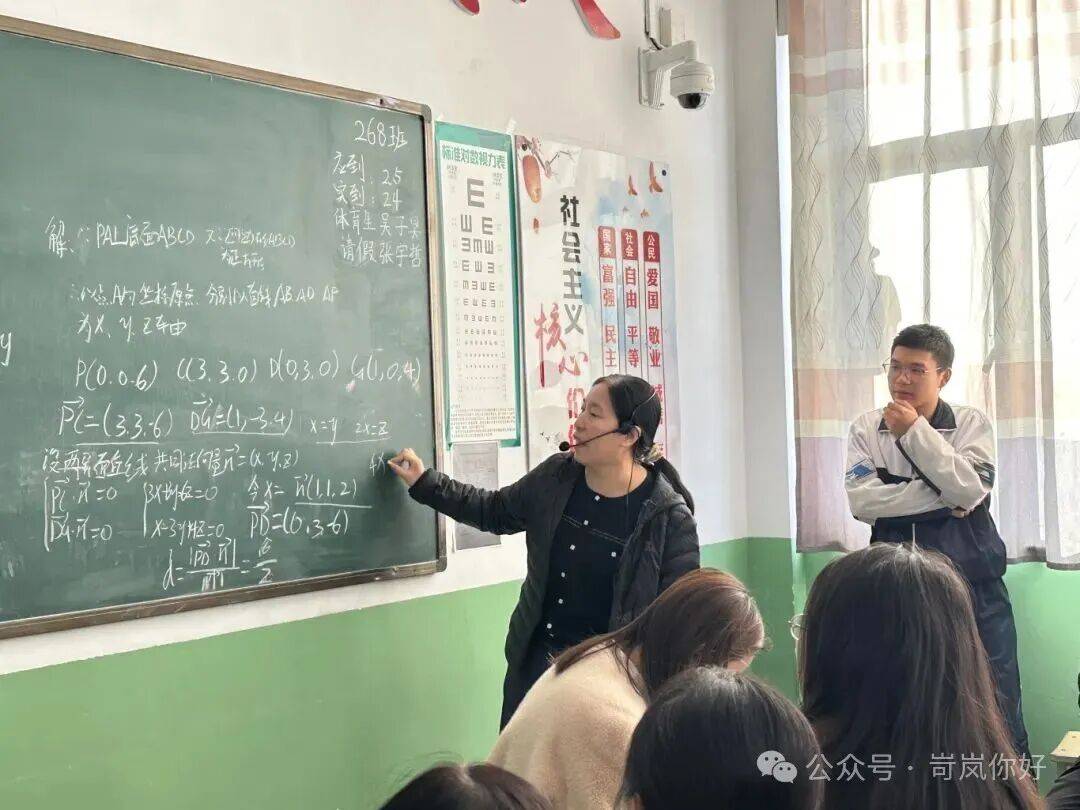 268班
应到:25
实到:24
体育生 吴子昊
请假 张宇哲
解:∵PA⊥底面ABCD
∴以点A为坐标原点 分别以直线AB.AD AP
为x、y、z轴
y
P(0.0.6) C(3.3.0) D(0,3,0) G(1,0,4)
PC=(3.3.-6) DG=(1,-3.4) x=y 2x=z
设两异面直线 共同法向量n=(x,y,z)
PC·n=0
DG·n=0
x-3y+4z=0
令x= n(1,1,2)
PD=(0.3,-6)
d=|PD·n|/|n|=√6/2
标准对数视力表
E
社会主义
核心价
国家 富强 民主
社会 自由 平等
公民 爱国 敬业
公众号 · 岢岚你好